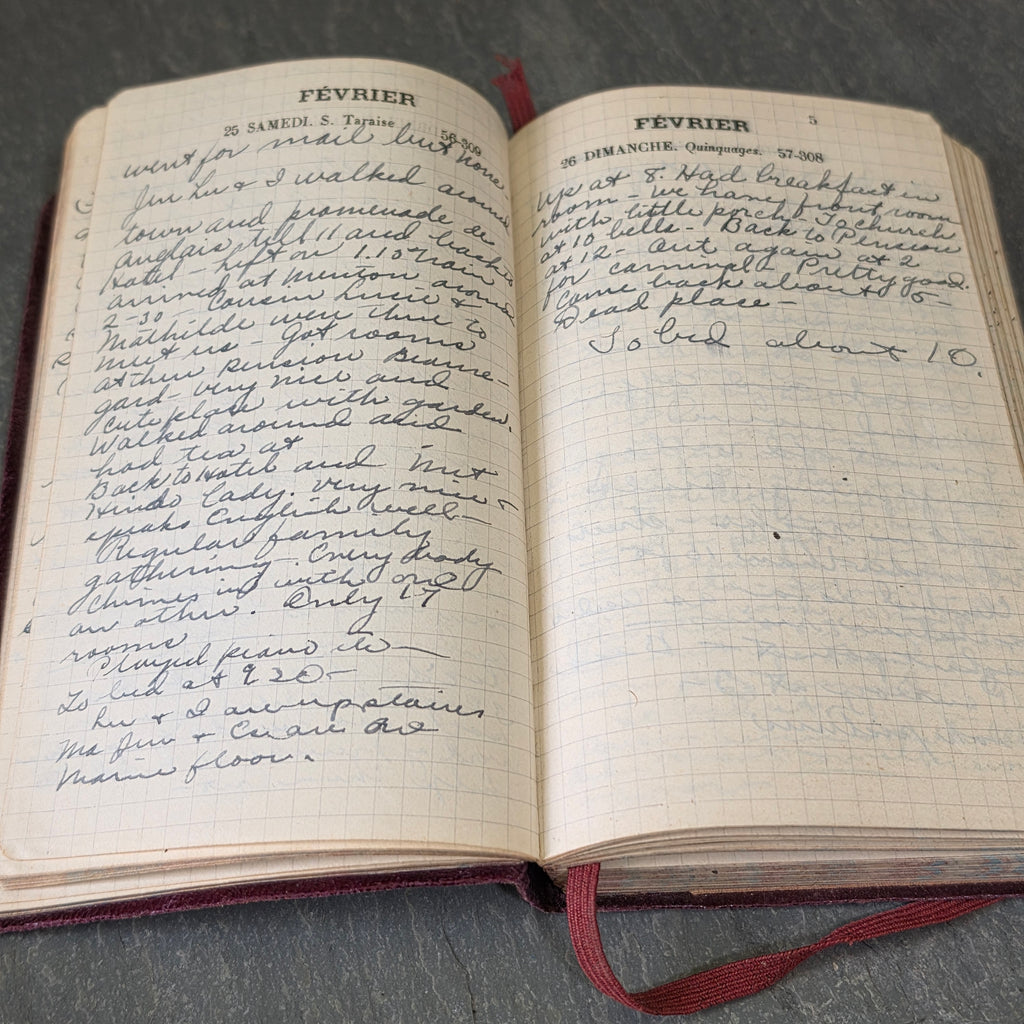 FÉVRIER
25 SAMEDI. S. Taraise 56-309
went for mail but none
Jen Lu & I walked around
town and promenade de
anglais till 11 and back to
Hotel - Left on 1.10 train
arrived at Menton around
2-30 - Cousin Lucie &
Mathilde were there to
meet us - Got rooms
at their Pension Beaure-
gard - very nice and
cute place with garden.
Walked around and
had tea at
Back to Hotel and met
Hindo lady. very nice &
speaks English well -
Regular family
gathering - Every body
chimes in with one
an other. Only 17
rooms
Played piano etc -
To bed at 9 30 -
Lu & I are upstairs
Ma Jen & are one
floor.
FÉVRIER 5
26 DIMANCHE. Quinquages. 57-308
Up at 8. Had breakfast in
room - We have front room
with little porch - To church
at 10 bells - Back to Pension
at 12 - Out again at 2
for carnival - Pretty good.
Came back about 5 -
Dead place -
To bed about 10.